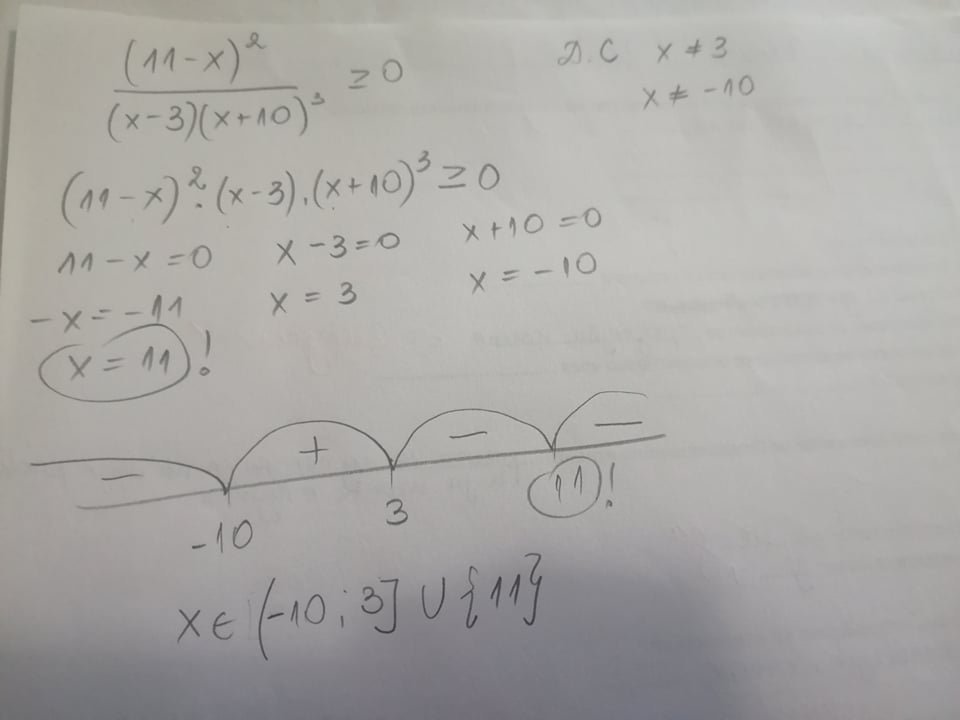 (11-x)²
/ (x-3)(x+10)³ ≥ 0
Д.С x ≠ 3
x ≠ -10
(11-x)².(x-3).(x+10)³ ≥ 0
11-x=0 x-3=0 x+10=0
-x=-11 x=3 x=-10
x=11!
- + - -
-10 3 11!
x∈(-10;3]∪{11}